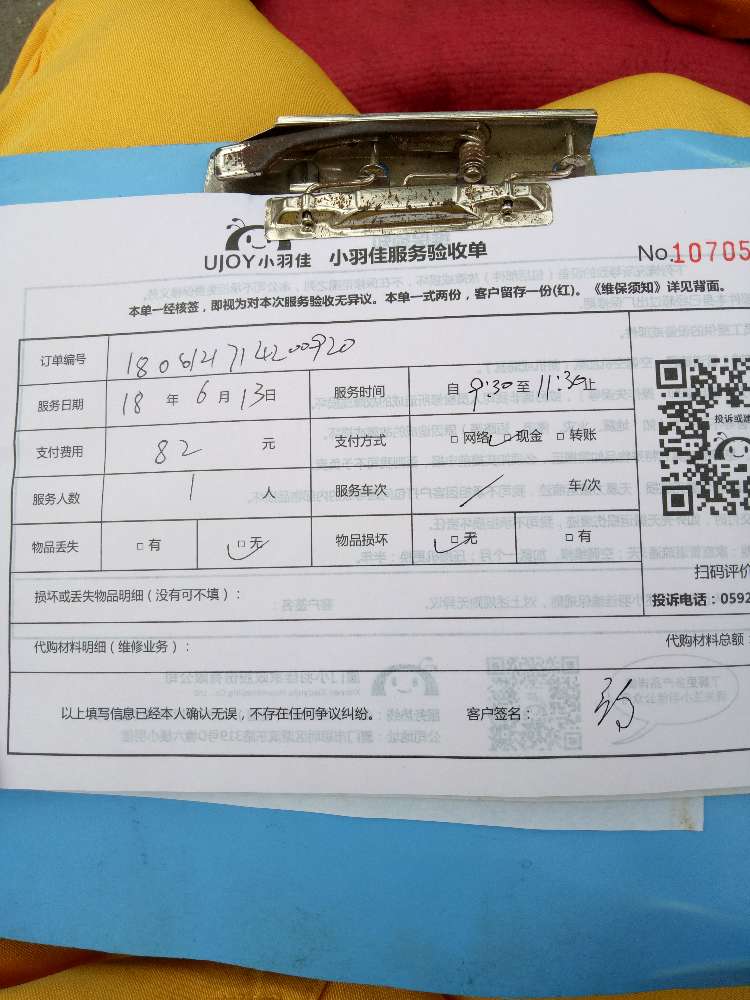 UJOY小羽佳 小羽佳服务验收单 No.10705
本单一经核签，即视为对本次服务验收无异议。本单一式两份，客户留存一份(红)。《维保须知》详见背面。
订单编号
服务日期 18 年 6 月 13 日 服务时间 自 9:30 至 11:30 止
支付费用 82 元 支付方式 □ 网络 □ 现金 □ 转账
投诉或建
服务人数 1 人 服务车次 / 车/次
物品丢失 □ 有 □ 无 物品损坏 □ 无 □ 有
扫码评价
损坏或丢失物品明细（没有可不填）：
投诉电话：0592
代购材料明细（维修业务）： 代购材料总额：
以上填写信息已经本人确认无误，不存在任何争议纠纷。 客户签名：